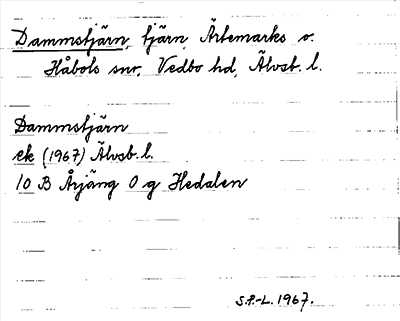 Dammstjärn, tjärn, Ärtemarks o.
Håbols snr, Vedbo hd, Älvsb. l.
Dammstjärn
ek (1967) Älvsb. l.
10 B Årjäng 0 g Hedalen
S.P.-L. 1967.